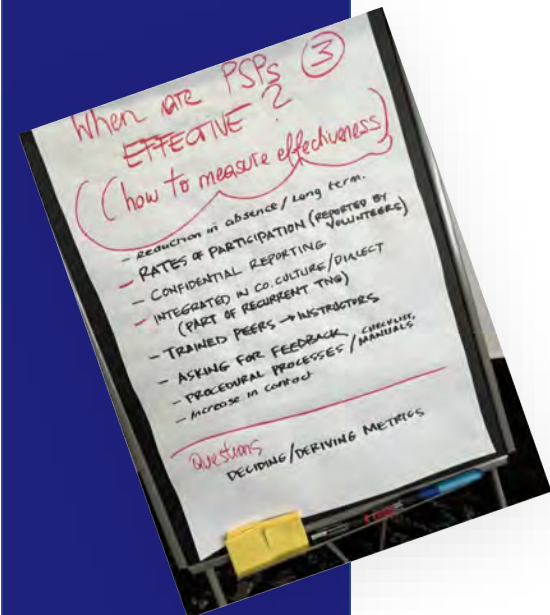 When are PSPs ③
EFFECTIVE?
(how to measure effectiveness)
- Reduction in absence/Long term.
- RATES OF PARTICIPATION (REPORTED BY
VOLUNTEERS)
- CONFIDENTIAL REPORTING
- INTEGRATED IN CO. CULTURE/DIALECT
(PART OF RECURRENT TNG)
- TRAINED PEERS → INSTRUCTORS
- ASKING FOR FEEDBACK
- PROCEDURAL PROCESSES / CHECKLIST,
MANUALS
- Increase in contact
Questions
DECIDING/DERIVING METRICS